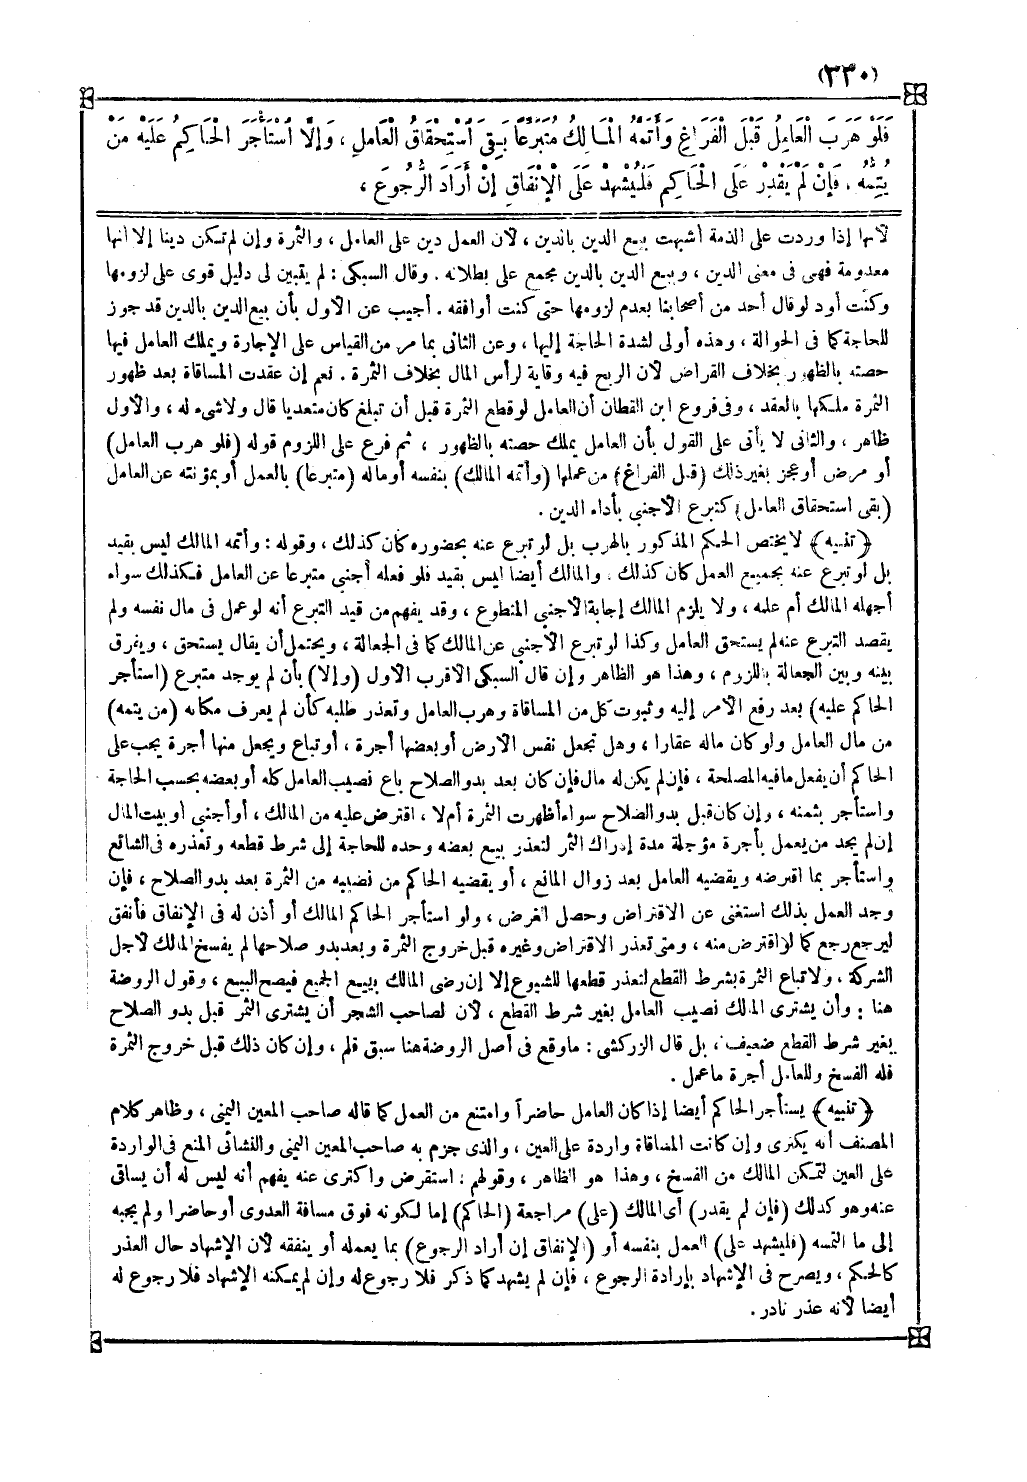 (٣٣٠)
فَلَوْ هَرَبَ الْعَامِلُ قَبْلَ الْفَرَاغِ وَأَتَمَّهُ الْمَالِكُ مُتَبَرِّعًا بَقِيَ اسْتِحْقَاقُ الْعَامِلِ ، وَإِلَّا اسْتَأْجَرَ الْحَاكِمُ عَلَيْهِ مَنْ
يُتِمُّهُ ، فَإِنْ لَمْ يَقْدِرْ عَلَى الْحَاكِمِ فَلْيُشْهِدْ عَلَى الْإِنْفَاقِ إِنْ أَرَادَ الرُّجُوعَ ،
لأنها إذا وردت على الذمة أشبهت بيع الدين بالدين ، لأن العمل دين على العامل ، والثمرة وإن لم تكن دينا إلا أنها
معدومة فهى فى معنى الدين ، وبيع الدين بالدين مجمع على بطلانه . وقال السبكى : لم يتبين لى دليل قوى على لزومها
وكنت أود لو قال أحد من أصحابنا بعدم لزومها حتى كنت أوافقه . أجيب عن الأول بأن بيع الدين بالدين قد جوز
للحاجة كما فى الحوالة ، وهذه أولى لشدة الحاجة إليها ، وعن الثانى بما مر من القياس على الإجارة ويملك العامل فيها
حصته بالظهور بخلاف القراض لأن الربح فيه وقاية لرأس المال بخلاف الثمرة . نعم إن عقدت المساقاة بعد ظهور
الثمرة ملكها بالعقد ، وفى فروع ابن القطان أن العامل لو قطع الثمرة قبل أن تبلغ كان متعديا قال ولا شىء له ، والأول
ظاهر ، والثانى لا يأتى على القول بأن العامل يملك حصته بالظهور ، ثم فرع على اللزوم قوله (فلو هرب العامل)
أو مرض أو عجز بغير ذلك (قبل الفراغ) من عملها (وأتمه المالك) بنفسه أو ماله (متبرعا) بالعمل أو بمؤنته عن العامل
(بقى استحقاق العامل) كتبرع الأجنبى بأداء الدين .
﴿تنبيه﴾ لا يختص الحكم المذكور بالهرب بل لو تبرع عنه بحضوره كان كذلك ، وقوله : وأتمه المالك ليس بقيد
بل لو تبرع عنه بجميع العمل كان كذلك . والمالك أيضا ليس بقيد فلو فعله أجنبى متبرعا عن العامل فكذلك سواء
أجهله المالك أم علمه ، ولا يلزم المالك إجابة الأجنبى المتطوع ، وقد يفهم من قيد التبرع أنه لو عمل فى مال نفسه ولم
يقصد التبرع عنه لم يستحق العامل وكذا لو تبرع الأجنبى عن المالك كما فى الجعالة ، ويحتمل أن يقال يستحق ، ويفرق
بينه وبين الجعالة باللزوم ، وهذا هو الظاهر وإن قال السبكى الأقرب الأول (وإلا) بأن لم يوجد متبرع (استأجر
الحاكم عليه) بعد رفع الأمر إليه وثبوت كل من المساقاة وهرب العامل وتعذر طلبه كأن لم يعرف مكانه (من يتمه)
من مال العامل ولو كان ماله عقارا ، وهل تجعل نفس الأرض أو بعضها أجرة ، أو تباع ويجعل منها أجرة يجب على
الحاكم أن يفعل ما فيه المصلحة ، فإن لم يكن له مال فإن كان بعد بدو الصلاح باع نصيب العامل كله أو بعضه بحسب الحاجة
واستأجر بثمنه ، وإن كان قبل بدو الصلاح سواء أظهرت الثمرة أم لا ، اقترض عليه من المالك ، أو أجنبى أو بيت المال
إن لم يجد من يعمل بأجرة مؤجلة مدة إدراك الثمر لتعذر بيع بعضه وحده للحاجة إلى شرط قطعه وتعذره فى الشائع
واستأجر بما اقترضه ويقضيه العامل بعد زوال المانع ، أو يقضيه الحاكم من نصيبه من الثمرة بعد بدو الصلاح ، فإن
وجد العمل بذلك استغنى عن الاقتراض وحصل الغرض ، ولو استأجر الحاكم المالك أو أذن له فى الإنفاق فأنفق
ليرجع رجع كما لو اقترض منه ، ومتى تعذر الاقتراض وغيره قبل خروج الثمرة وبعد بدو صلاحها لم يفسخ المالك لأجل
الشركة ، ولا تباع الثمرة بشرط القطع لتعذر قطعها للشيوع إلا إن رضى المالك ببيع الجميع فيصح البيع ، وقول الروضة
هنا : وأن يشترى المالك نصيب العامل بغير شرط القطع ، لأن لصاحب الشجر أن يشترى الثمر قبل بدو الصلاح
بغير شرط القطع ضعيف ، بل قال الزركشى : ما وقع فى أصل الروضة هنا سبق قلم ، وإن كان ذلك قبل خروج الثمرة
فله الفسخ وللعامل أجرة ما عمل .
﴿تنبيه﴾ يستأجر الحاكم أيضا إذا كان العامل حاضرا وامتنع من العمل كما قاله صاحب المعين اليمنى ، وظاهر كلام
المصنف أنه يكترى وإن كانت المساقاة واردة على العين ، والذى جزم به صاحب المعين اليمنى والنشائى المنع فى الواردة
على العين لتمكن المالك من الفسخ ، وهذا هو الظاهر ، وقولهم : استقرض واكترى عنه يفهم أنه ليس له أن يساقى
عنه وهو كذلك (فإن لم يقدر) أى المالك (على) مراجعة (الحاكم) إما لكونه فوق مسافة العدوى أو حاضرا ولم يجبه
إلى ما التمسه (فليشهد على) العمل بنفسه أو (الإنفاق إن أراد الرجوع) بما يعمله أو ينفقه لأن الإشهاد حال العذر
كالحكم ، ويصرح فى الإشهاد بإرادة الرجوع ، فإن لم يشهد كما ذكر فلا رجوع له وإن لم يمكنه الإشهاد فلا رجوع له
أيضا لأنه عذر نادر .